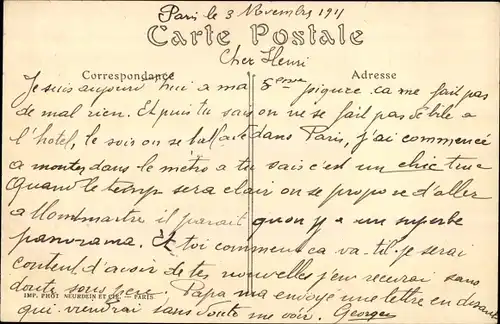 Paris le 3 Novembre 1911
Carte Postale
Cher Henri
Correspondance
Adresse
Je suis aujourd'hui a ma 5ème piqure ca me fait pas
de mal rien. Et puis tu sais on ne se fait pas de bile a
l'hotel, le soir on se ballade dans Paris, j'ai commencé
a monter dans le métro a tu sais c'est un chic truc
Quand le temp sera clair on se propose d'aller
a Montmartre il parait quon y a un superbe
panorama. Et toi comment ca va-t-il je serai
content d'avoir de tes nouvelles j'en recevrai sans
doute sous peu. Papa ma envoye une lettre en disant
IMP. PHOT NEURDEIN ET CIE. — PARIS.
qui viendrai sans doute me voir. Georges